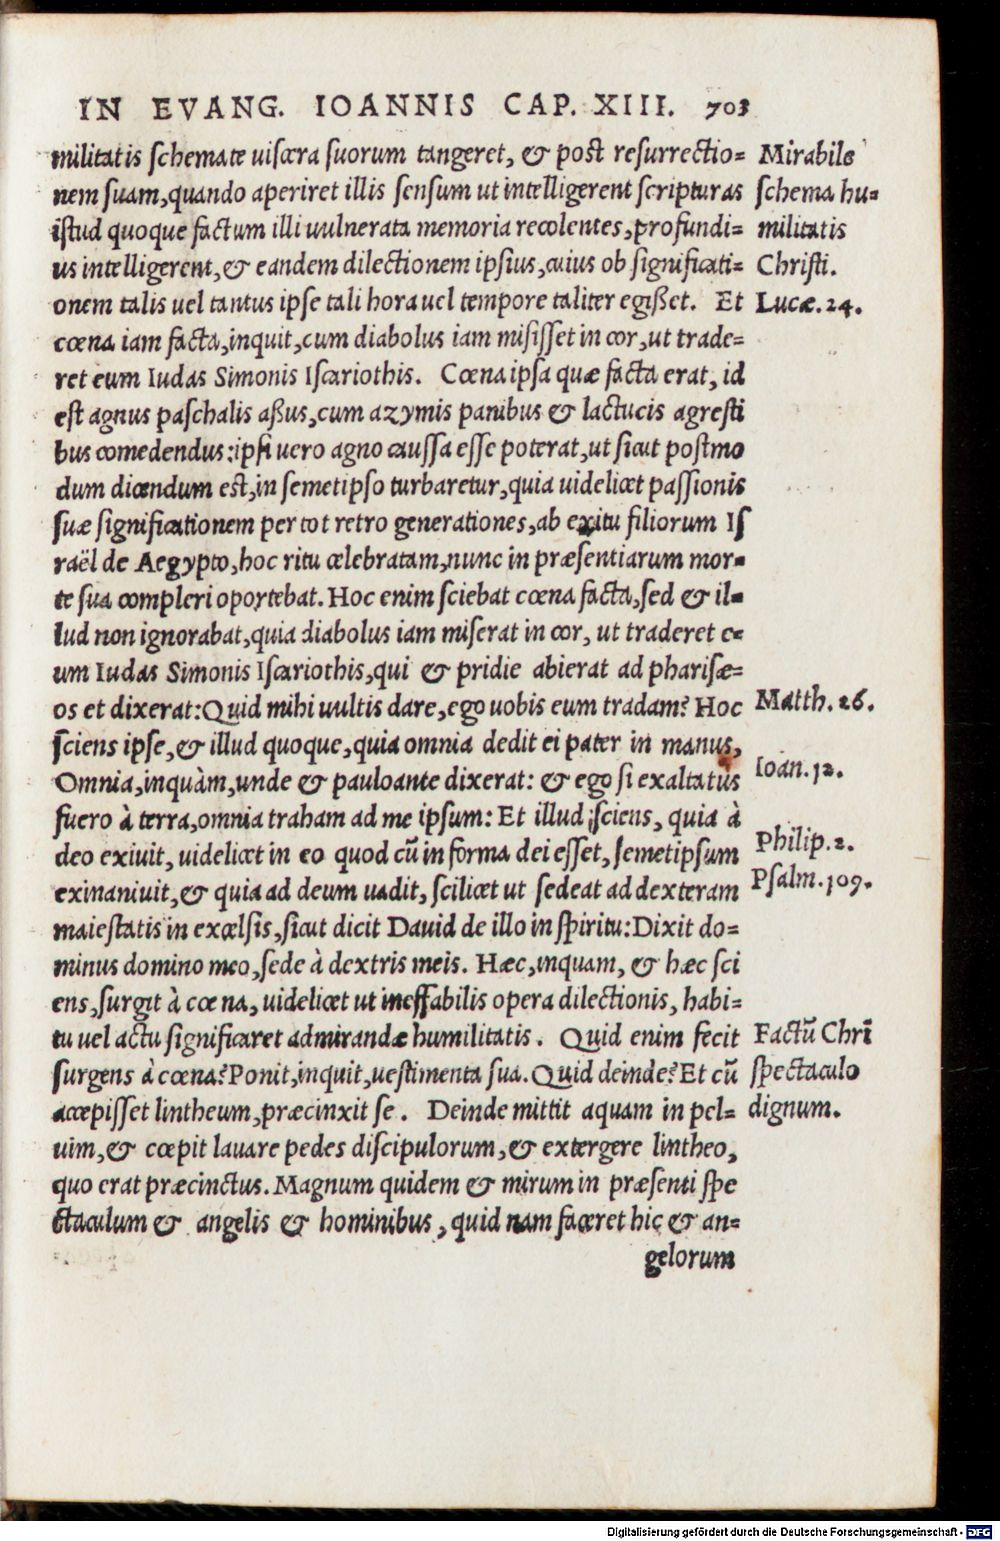 IN EVANG. IOANNIS CAP. XIII. 703
militatis schemate uiscera suorum tangeret, & post resurrectio=
nem suam, quando aperiret illis sensum ut intelligerent scripturas
istud quoque factum illi uulnerata memoria recolentes, profundi=
us intelligerent, & eandem dilectionem ipsius, cuius ob significati=
onem talis uel tantus ipse tali hora uel tempore taliter egißet. Et
cœna iam facta, inquit, cum diabolus iam misisset in cor, ut trade=
ret eum Iudas Simonis Iscariothis. Cœna ipsa quæ facta erat, id
est agnus paschalis aßus, cum azymis panibus & lactucis agresti
bus comedendus: ipsi uero agno caussa esse poterat, ut sicut postmo
dum dicendum est, in semetipso turbaretur, quia uidelicet passionis
suæ significationem per tot retro generationes, ab exitu filiorum Is
raël de Aegypto, hoc ritu celebratam, nunc in præsentiarum mor=
te sua compleri oportebat. Hoc enim sciebat cœna facta, sed & il=
lud non ignorabat, quia diabolus iam miserat in cor, ut traderet e=
um Iudas Simonis Iscariothis, qui & pridie abierat ad pharisæ=
os et dixerat: Quid mihi uultis dare, ego uobis eum tradam? Hoc
sciens ipse, & illud quoque, quia omnia dedit ei pater in manus,
Omnia, inquàm, unde & pauloante dixerat: & ego si exaltatus
fuero à terra, omnia traham ad me ipsum: Et illud sciens, quia à
deo exiuit, uidelicet in eo quod cũ in forma dei esset, semetipsum
exinaniuit, & quia ad deum uadit, scilicet ut sedeat ad dexteram
maiestatis in excelsis, sicut dicit Dauid de illo in spiritu: Dixit do=
minus domino meo, sede à dextris meis. Hæc, inquam, & hæc sci
ens, surgit à cœna, uidelicet ut ineffabilis opera dilectionis, habi=
tu uel actu significaret admirandæ humilitatis. Quid enim fecit
surgens à cœna? Ponit, inquit, uestimenta sua. Quid deinde? Et cũ
accepisset lintheum, præcinxit se. Deinde mittit aquam in pel=
uim, & cœpit lauare pedes discipulorum, & extergere lintheo,
quo erat præcinctus. Magnum quidem & mirum in præsenti spe
ctaculum & angelis & hominibus, quid nam faceret hic & an=
gelorum
Mirabile
schema hu=
militatis
Christi.
Lucæ. 24.
Matth. 26.
Ioan. 12.
Philip. 2.
Psalm. 109.
Factũ Chrĩ
spectaculo
dignum.
Digitalisierung gefördert durch die Deutsche Forschungsgemeinschaft - DFG